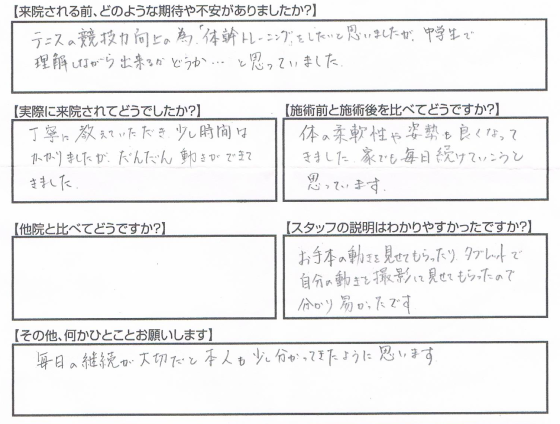 【来院される前、どのような期待や不安がありましたか?】
テニスの競技力向上の為、「体幹トレーニング」をしたいと思いましたが、中学生で
理解しながら出来るかどうか…と思っていました。
【実際に来院されてどうでしたか?】
丁寧に教えていただき少し時間は
かかりましたが、だんだん動きができて
きました。
【施術前と施術後を比べてどうですか?】
体の柔軟性や姿勢も良くなって
きました。家でも毎日続けていこうと
思っています。
【他院と比べてどうですか?】
【スタッフの説明はわかりやすかったですか?】
お手本の動きを見せてもらったり、タブレットで
自分の動きを撮影して見せてもらったので
分かり易かったです
【その他、何かひとことお願いします】
毎日の継続が大切だと本人も少し分かってきたように思います